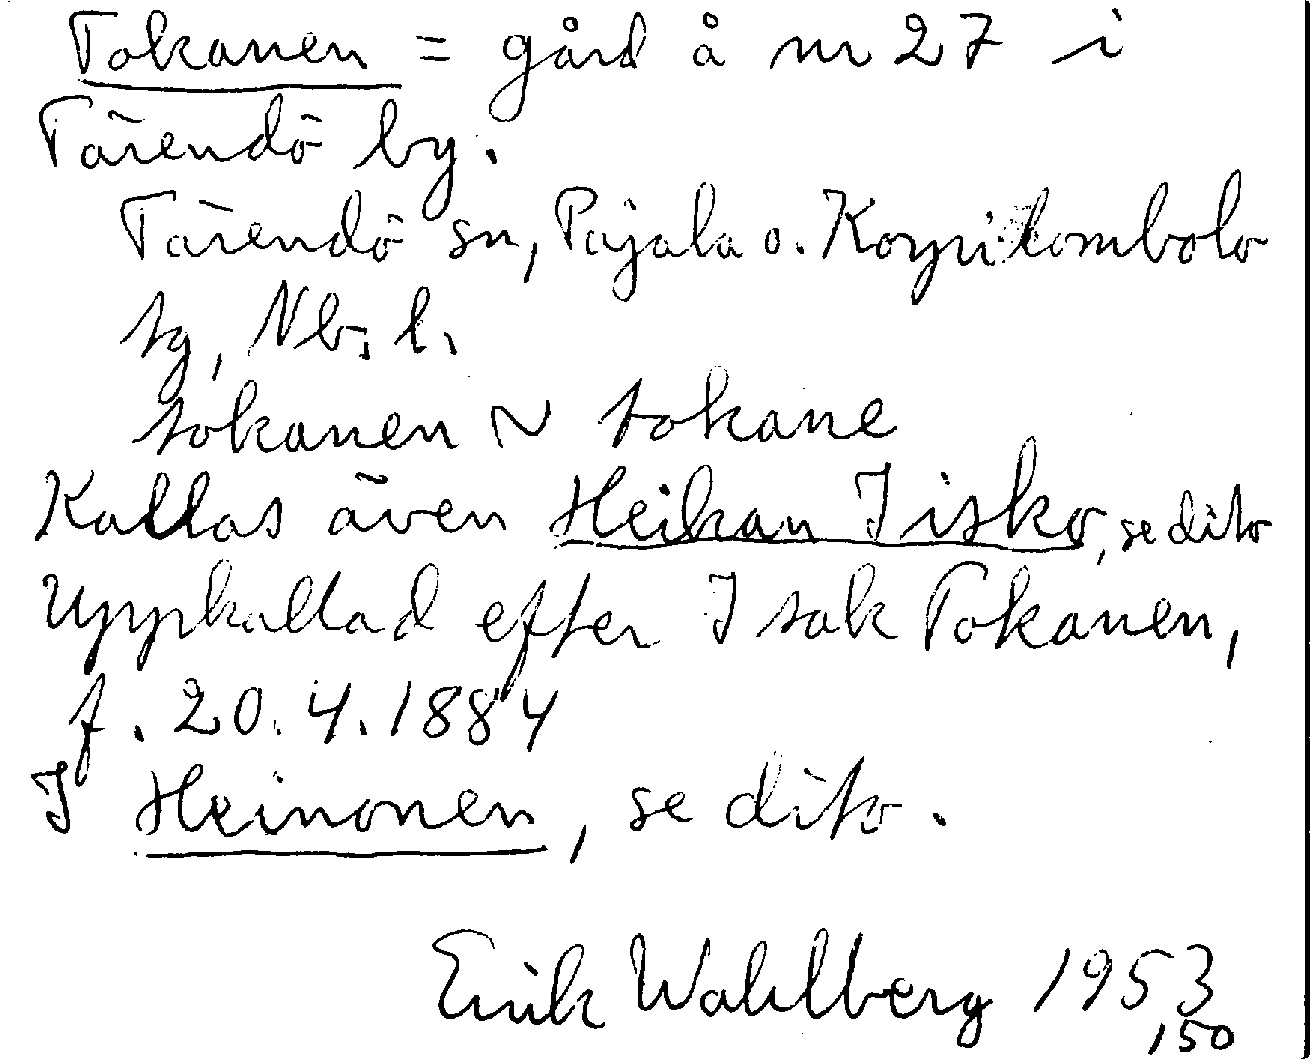 Tokanen = gård å nr 27 i
Tärendö by.
Tärendö sn, Pajala o. Korpilombolo
tg, Nb. l.
tokanen ~ tokane
Kallas även Heikan Iisko, se dito
Uppkallad efter Isak Tokanen,
f. 20.4.1884
I Heinonen, se dito.
Erik Wahlberg 1953
150